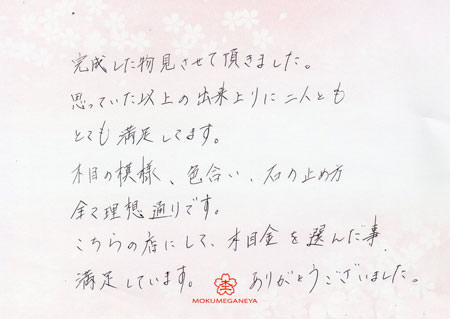 完成した物見させて頂きました。
思っていた以上の出来上りに二人とも
とても満足してます。
木目の模様、色合い、石の止め方
全て理想通りです。
こちらの店にして、木目金を選んだ事
満足しています。 ありがとうございました。
MOKUMEGANEYA